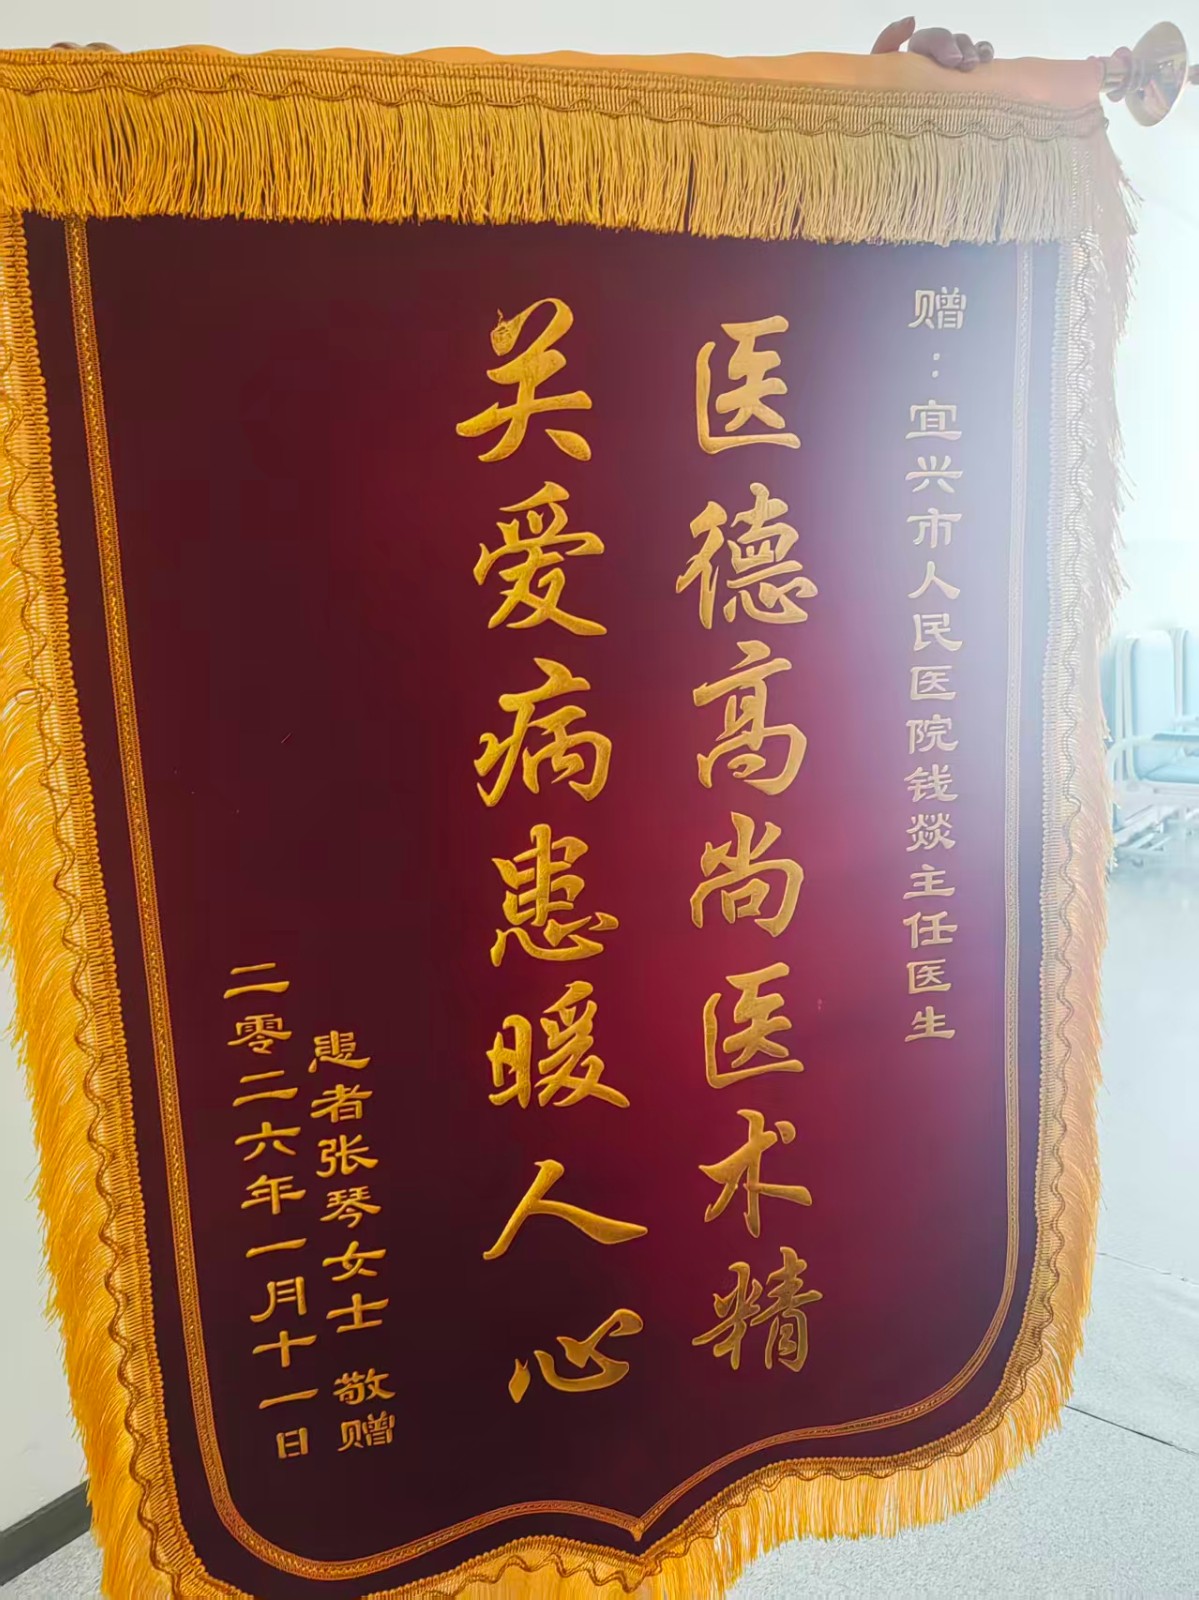 赠：宜兴市人民医院钱燚主任医生
医德高尚医术精
关爱病患暖人心
患者张琴女士 敬赠
二零二六年一月十一日